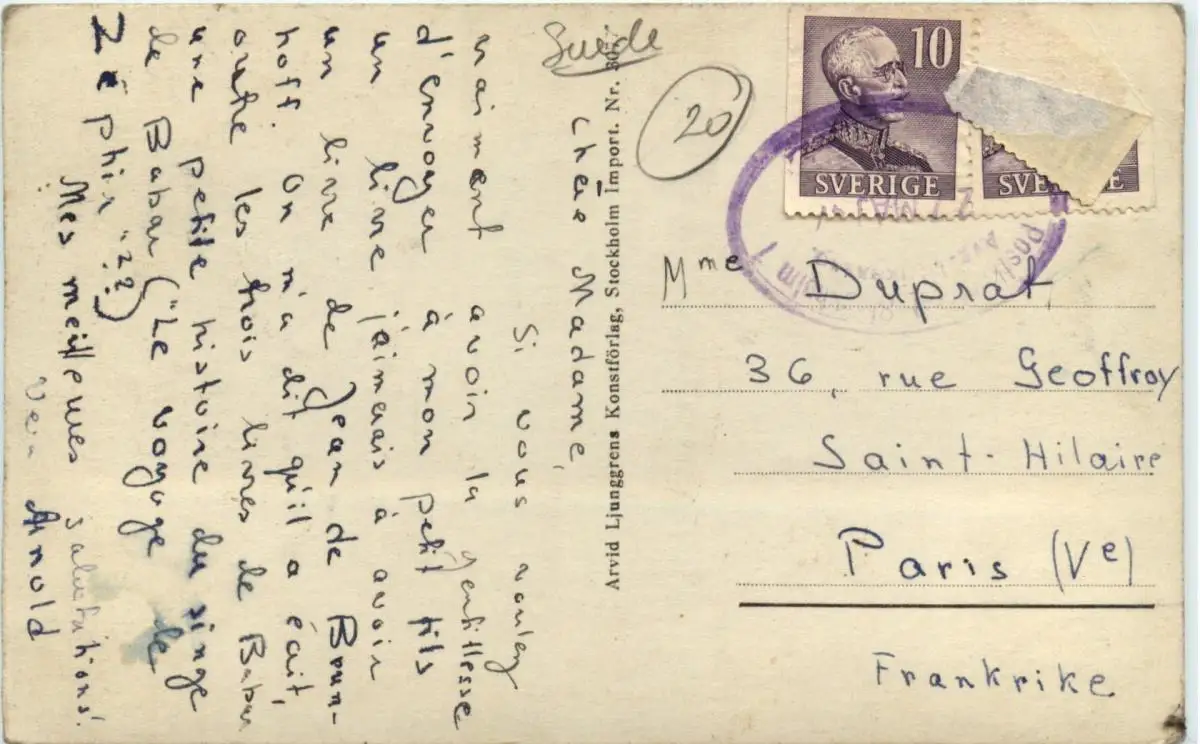 Suède
20
10
SVERIGE
SVERIGE
Chère Madame,
Si vous voulez
vraiment avoir la gentillesse
d'envoyer à mon petit fils
un livre j'aimerais à avoir
un livre de Jean de Brun-
hoff. On m'a dit qu'il a écrit,
outre les trois livres de Babar
une petite histoire du singe
de Babar ("Le voyage de
Zéphir"??)
Mes meilleures salutations!
Arnold
Arvid Ljunggrens Konstförlag, Stockholm Import. Nr. 
Mme Duprat
36, rue Geoffroy
Saint-Hilaire
Paris (Ve)
Frankrike